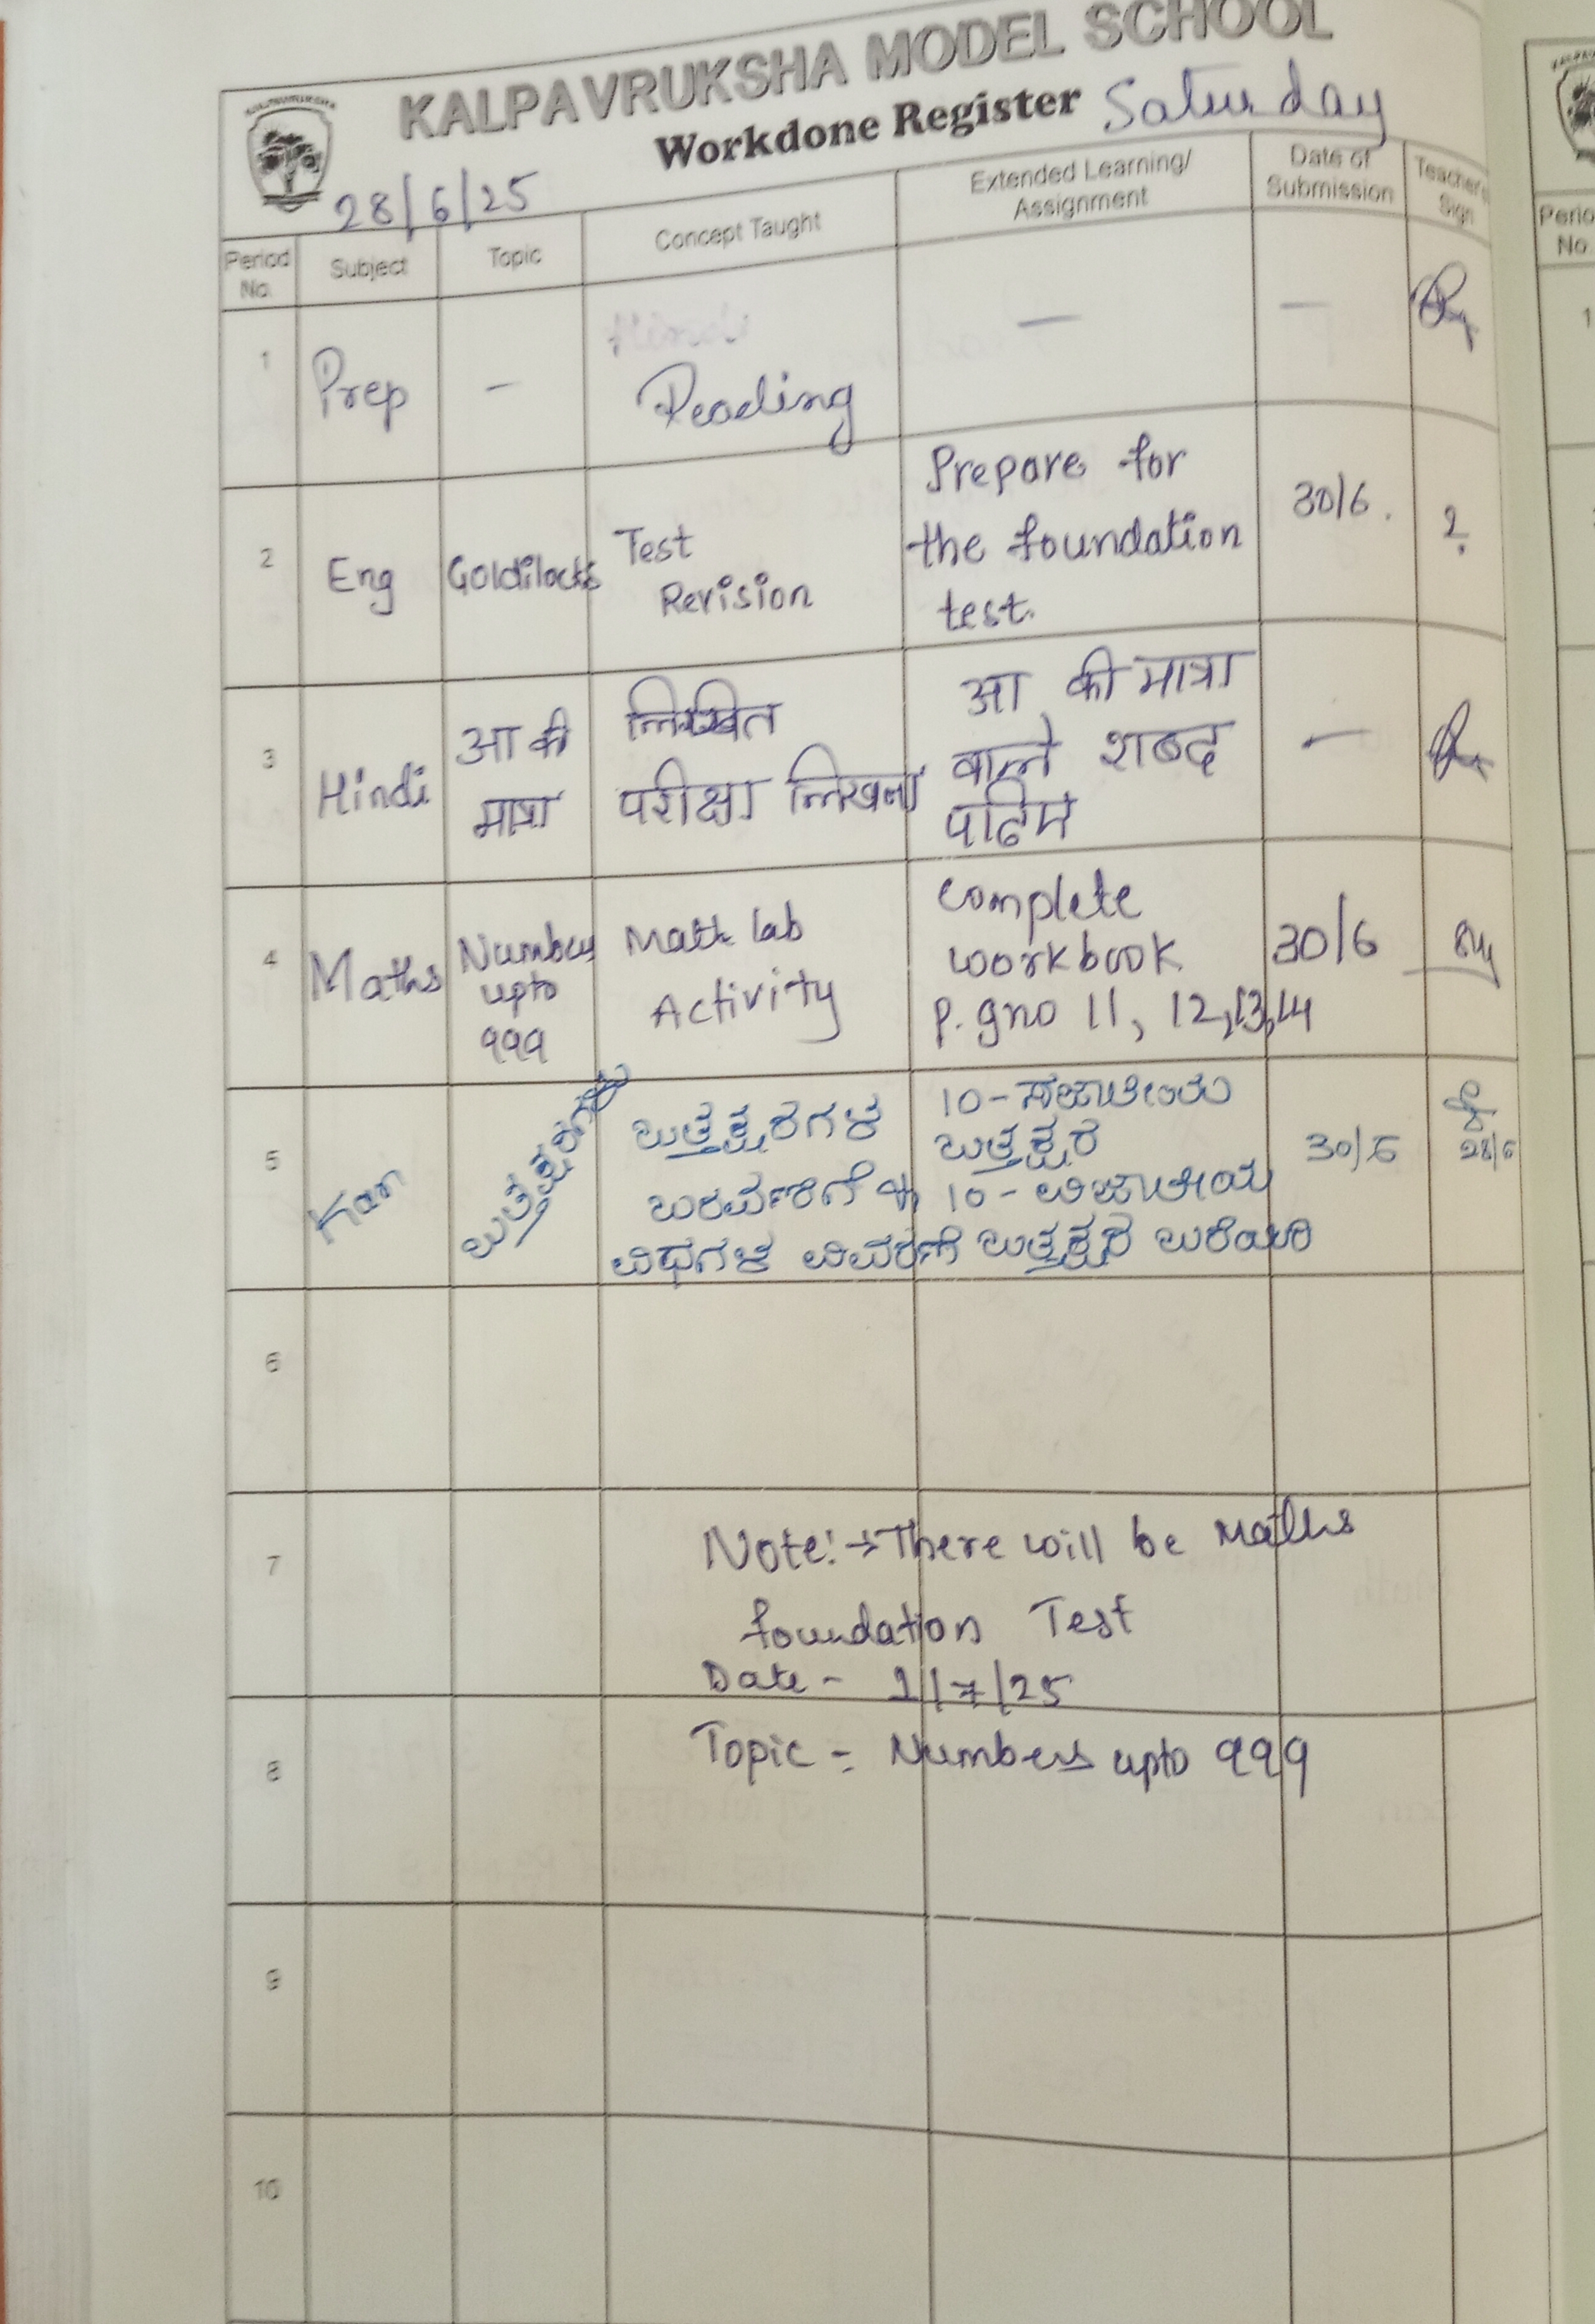 KALPAVRUKSHA MODEL SCHOOL
Workdone Register Saturday
28/6/25
Period No.
Subject
Topic
Concept Taught
Extended Learning/
Assignment
Date of
Submission
Teacher's
Sign
1
Prep
-
Reading
—
—
2
Eng
Goldilocks
Test
Revision
Prepare for
the foundation
test.
30/6.
3
Hindi
आ की
मात्रा
लिखित
परीक्षा लिखना
आ की मात्रा
वाले शब्द
पढिए
—
4
Maths
Numbers
upto
999
Math lab
Activity
Complete
workbook
p.gno 11, 12,13,14
30/6
5
Kan
ಒತ್ತಕ್ಷರಗಳು
ಒತ್ತಕ್ಷರಗಳ
ಬರವಣಿಗೆ &
ವಿಧಗಳ ವಿವರಣೆ
10-ಸಜಾತೀಯ
ಒತ್ತಕ್ಷರ
10-ವಿಜಾತೀಯ
ಒತ್ತಕ್ಷರ ಬರೆಯಿರಿ
30/6
28/6
6
7
Note:→There will be Maths
foundation Test
Date - 1/7/25
8
Topic - Numbers upto 999
9
10
Perio
No.
1